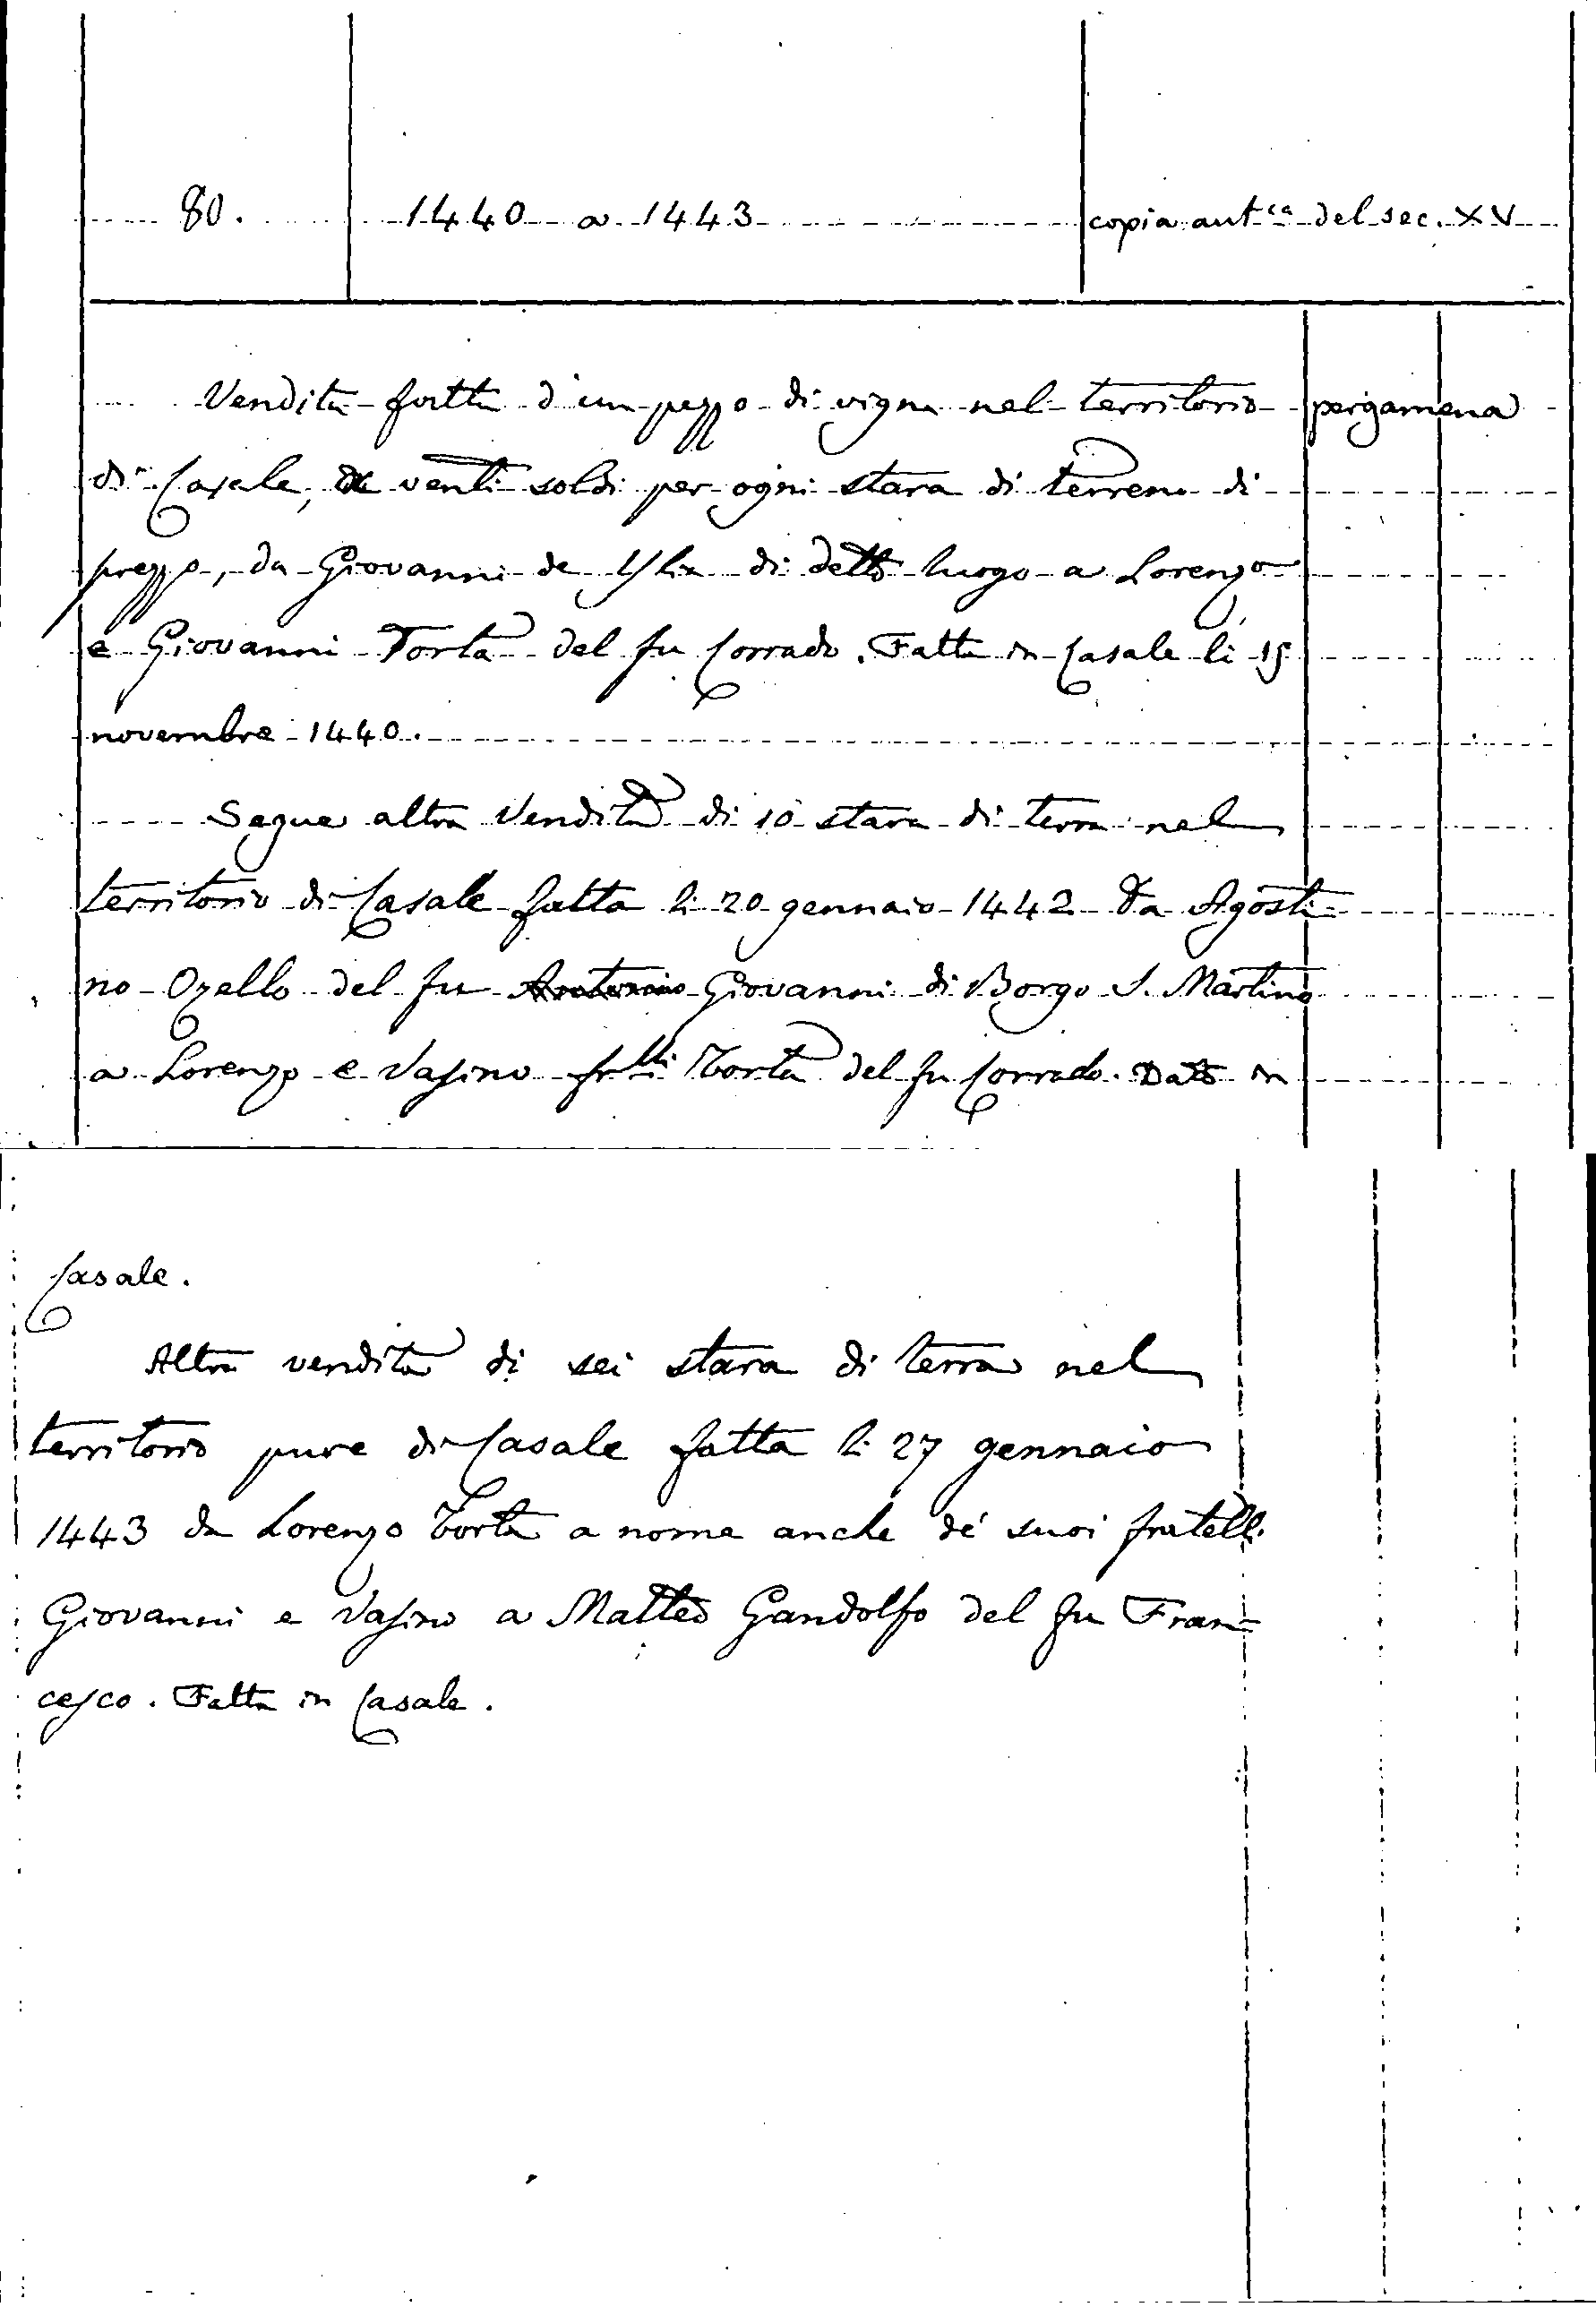 80. 1440 a 1443 copia aut.ca del sec. XV
Vendita fatta d'un pezzo di vigna nel territorio pergamena
di Casale, venti soldi per ogni stara di terreno di
prezzo, da Giovanni de Ysla di detto luogo a Lorenzo
e Giovanni Torta del fu Corrado. Fatta in Casale li 15
novembre 1440.
Segue altra Vendita di 10 stara di terra nel
territorio di Casale fatta li 20 gennaio 1442 da Agosti=
no Ozello del fu Antonino Giovanni di Borgo S. Martino
a Lorenzo e Vasino frlli Torta del fu Corrado. Dato in
Casale.
Altra vendita di sei stara di terra nel
territorio pure di Casale fatta li 27 gennaio
1443 da Lorenzo Torta a nome anche de' suoi fratelli
Giovanni e Vasino a Matteo Gandolfo del fu Fran=
cesco. Fatta in Casale.